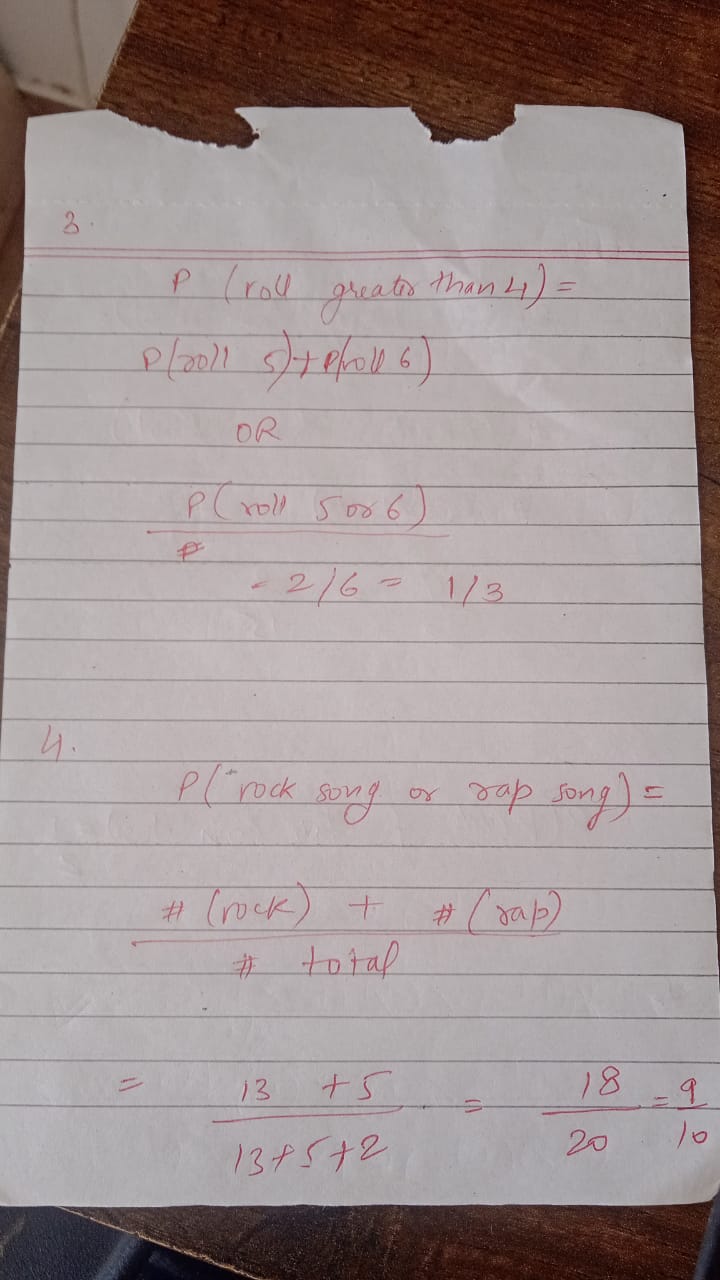 3.
P (roll greater than 4) =
P(roll 5) + P(roll 6)
OR
P(roll 5 or 6)
= 2/6 = 1/3
4.
P(rock song or rap song) =
# (rock) + # (rap)
# total
= 13 + 5 = 18 = 9
13+5+2 20 10